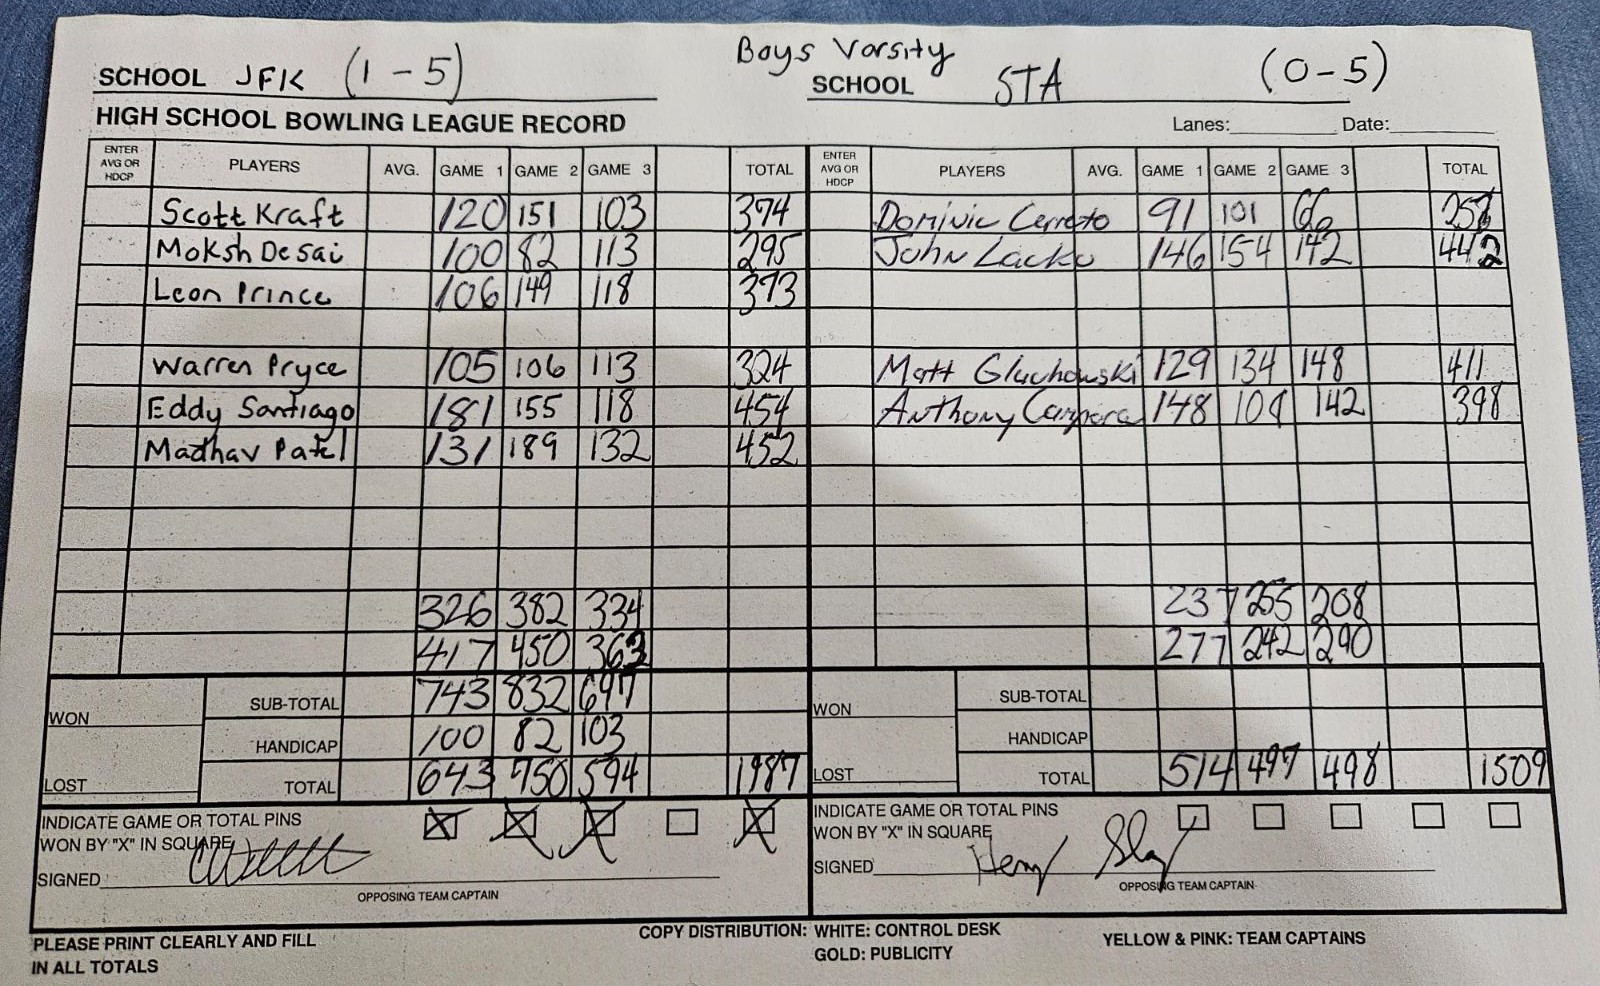 Boys Varsity
SCHOOL JFK (1-5) SCHOOL STA (0-5)
HIGH SCHOOL BOWLING LEAGUE RECORD Lanes: Date:
ENTER AVG OR HDCP PLAYERS AVG. GAME 1 GAME 2 GAME 3 TOTAL ENTER AVG OR HDCP PLAYERS AVG. GAME 1 GAME 2 GAME 3 TOTAL
Scott Kraft 120 151 103 374 Dominic Cerreto 91 101 66 258
Moksh Desai 100 82 113 295 John Lacko 146 154 142 442
Leon Prince 106 149 118 373
Warren Pryce 105 106 113 324 Matt Gluchowski 129 134 148 411
Eddy Santiago 181 155 118 454 Anthony 148 108 142 398
Madhav Patel 131 189 132 452
326 382 334 237 255 208
417 450 363 277 242 290
WON SUB-TOTAL 743 832 697 WON SUB-TOTAL
HANDICAP 100 82 103 HANDICAP
LOST TOTAL 643 750 594 1987 LOST TOTAL 514 497 498 1509
INDICATE GAME OR TOTAL PINS INDICATE GAME OR TOTAL PINS
WON BY "X" IN SQUARE WON BY "X" IN SQUARE
SIGNED SIGNED Henry
OPPOSING TEAM CAPTAIN OPPOSING TEAM CAPTAIN
PLEASE PRINT CLEARLY AND FILL COPY DISTRIBUTION: WHITE: CONTROL DESK YELLOW & PINK: TEAM CAPTAINS
IN ALL TOTALS GOLD: PUBLICITY